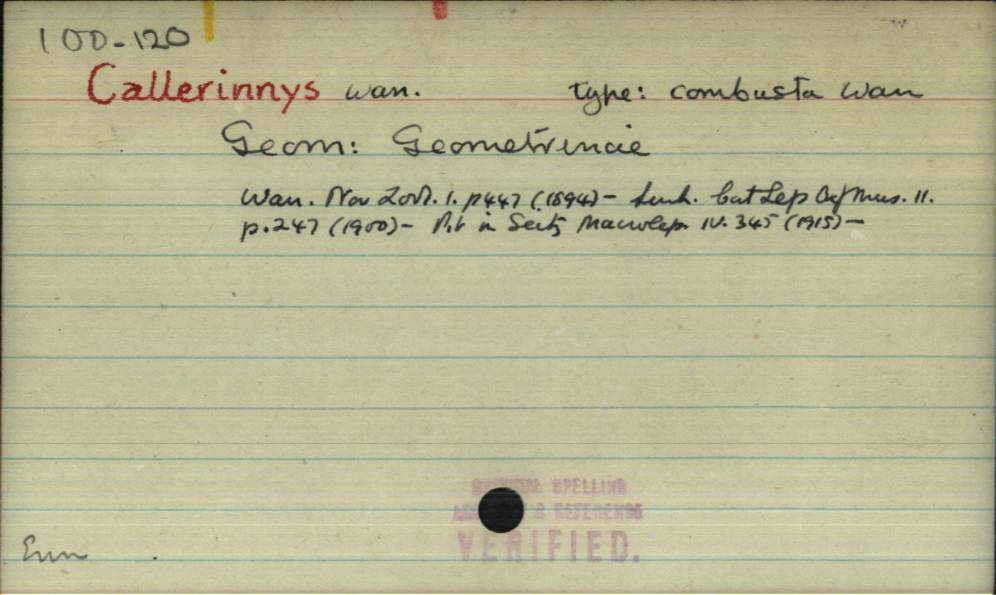 100-120
Callerinnys Warr. type: combusta Warr
Geom: Geometrinae
Warr. Nov Zool. 1. p447 (1894)- Swinh. Cat Lep Oxf Mus. 11.
p.247 (1900)- Prt in Seitz Macrolep. IV. 345 (1915)-
SPELLING
& REFERENCE
VERIFIED.